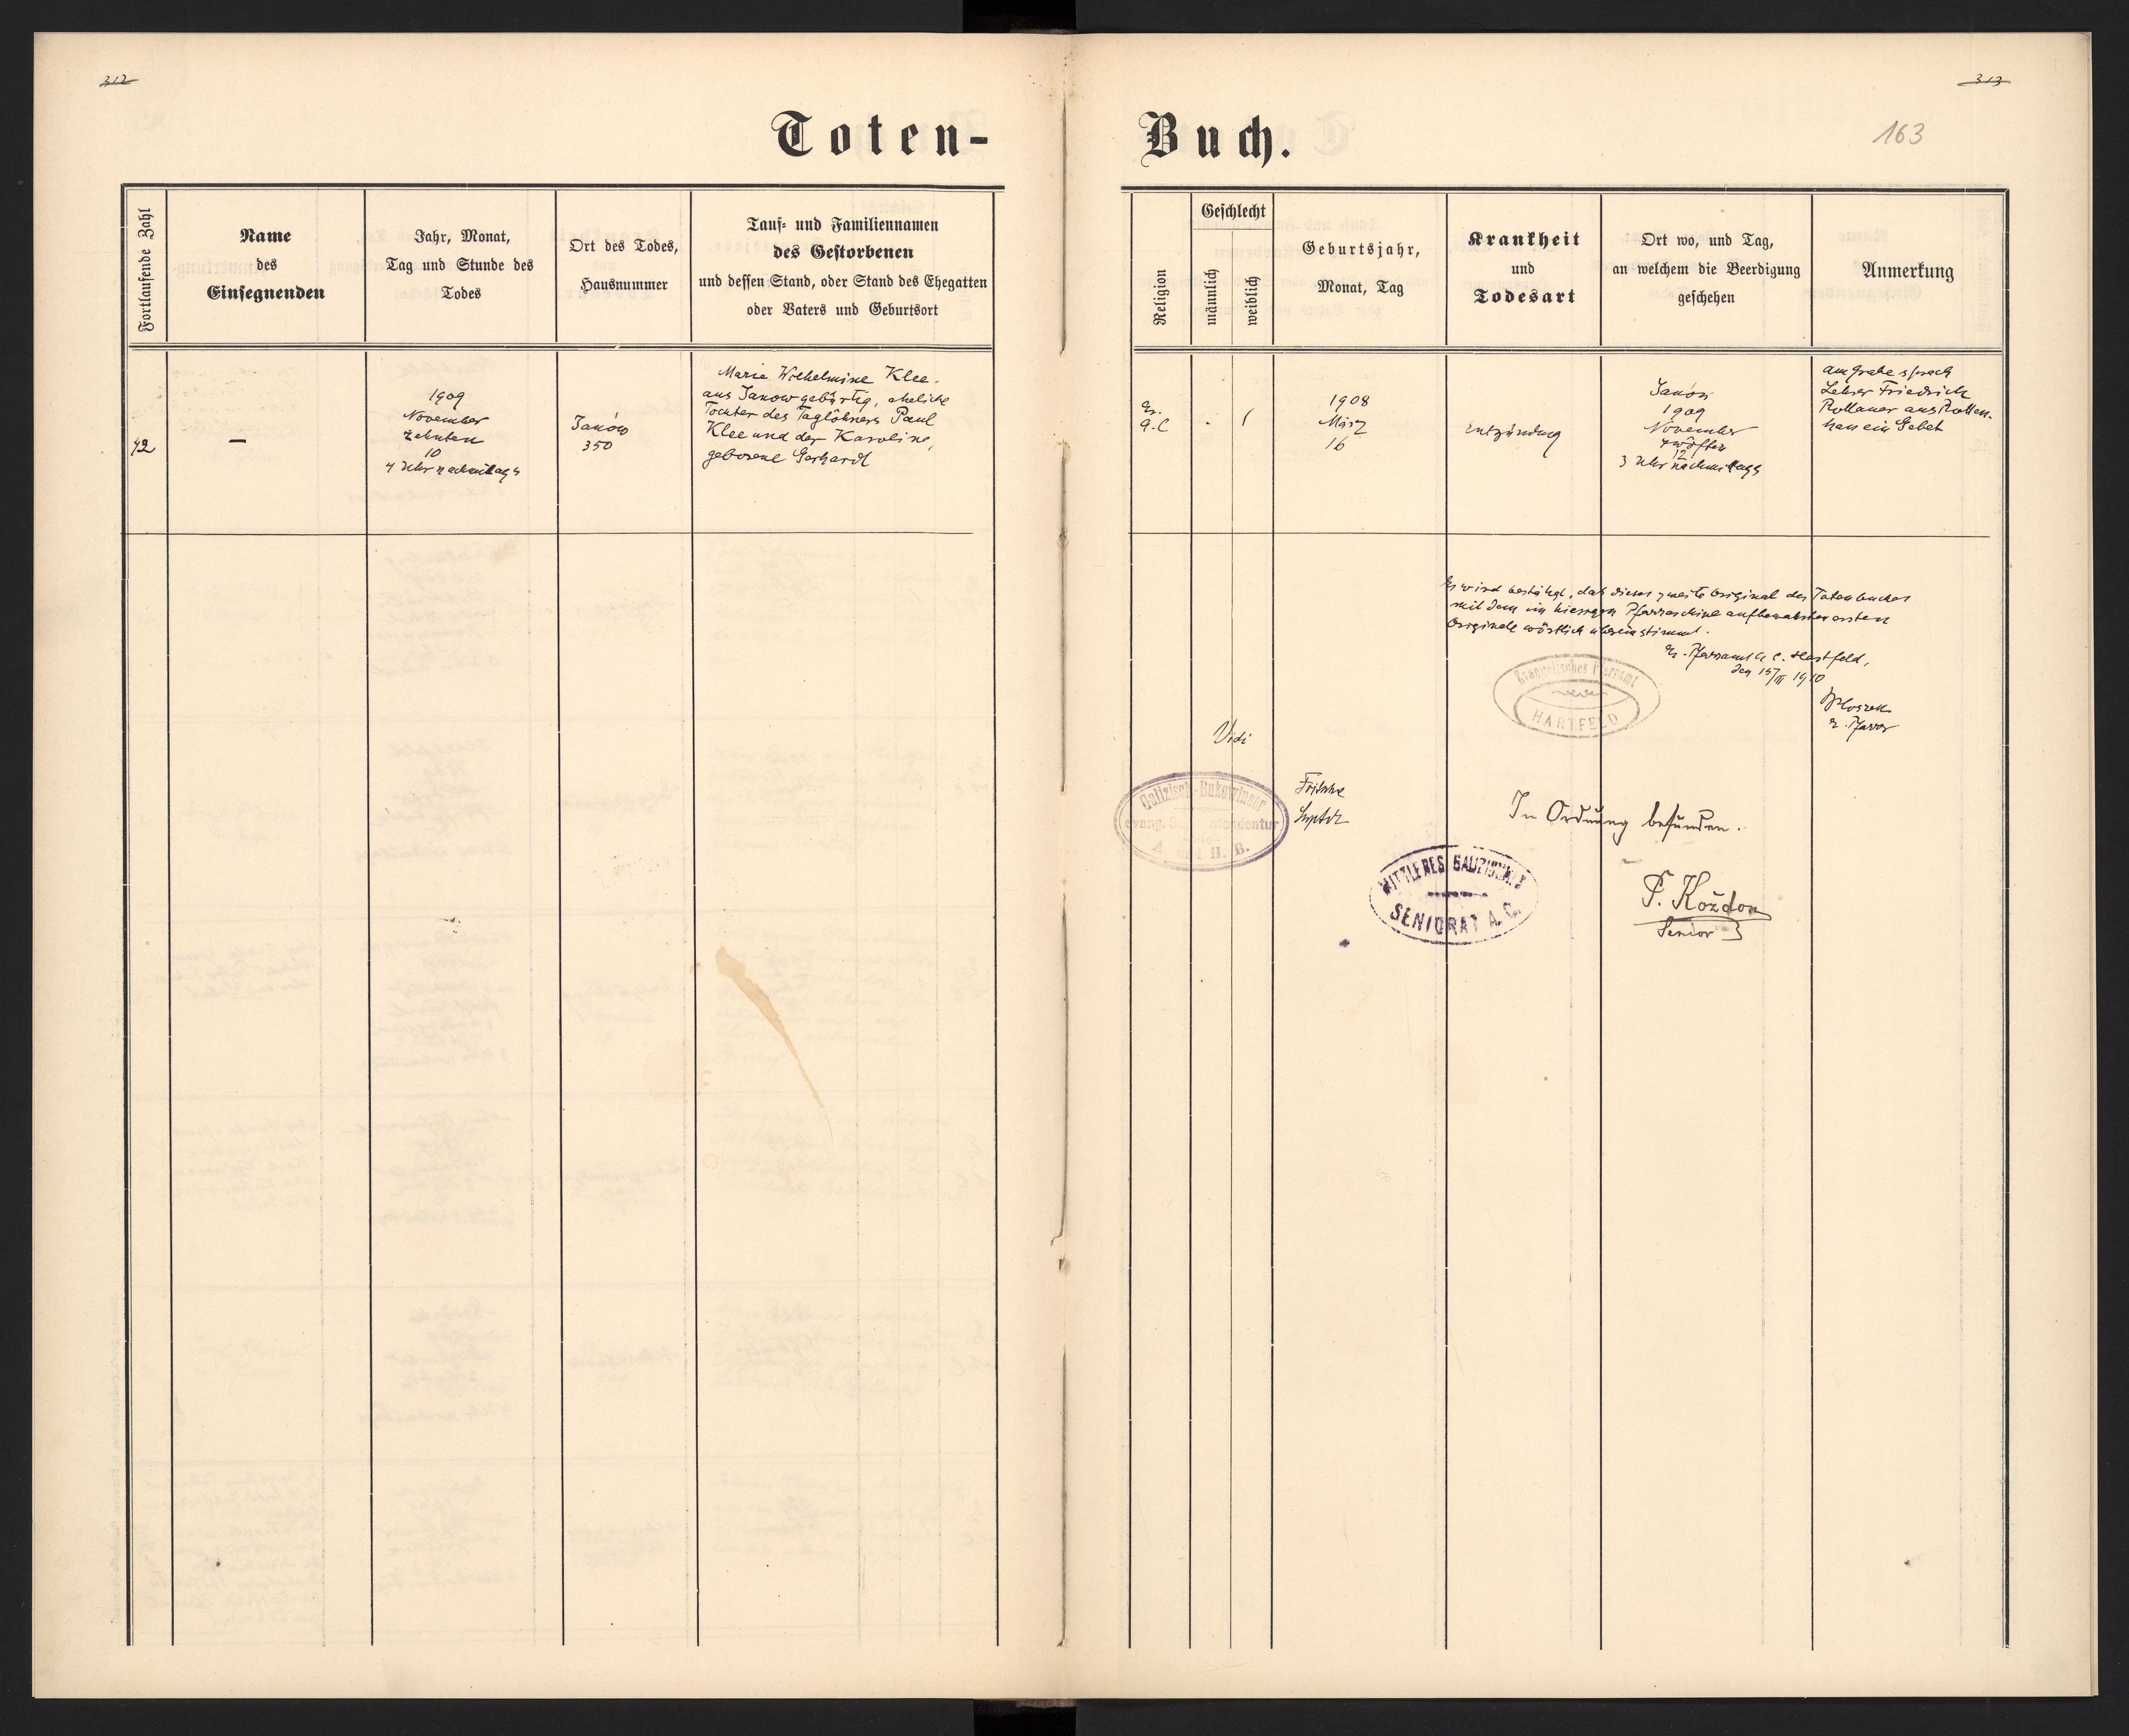 312
313
163
Toten-
Buch.
Fortlaufende Zahl
Name
des
Einsegnenden
Jahr, Monat,
Tag und Stunde des
Todes
Ort des Todes,
Hausnummer
Tauf- und Familiennamen
des Gestorbenen
und dessen Stand, oder Stand des Ehegatten
oder Vaters und Geburtsort
Religion
Geschlecht
männlich
weiblich
Geburtsjahr,
Monat, Tag
Krankheit
und
Todesart
Ort wo, und Tag,
an welchem die Beerdigung
geschehen
Anmerkung
42
—
1909
November
zehnten
10
4 Uhr nachmittags
Janów
350
Marie Wilhelmine Klee.
aus Janow gebürtig, eheliche
Tochter des Taglöhners Paul
Klee und der Karoline,
geborene Gerhardt
Ev.
A.C
1
1908
März
16
Entzündung
Janów
1909
November
zwölften
12
3 Uhr nachmittags
am Grabe sprach
Lehrer Friedrich
Rollauer aus Rotten-
han ein Gebet
Es wird bestätigt, daß dieses zweite Original des Totenbuches
mit dem im hiesigen Pfarrarchive aufbewahrten ersten
Originale wörtlich übereinstimmt.
Ev. Pfarramt A. C. Hartfeld,
den 15/III 1910
Ev. Pfarrer
Evangelisches Pfarramt
HARTFELD
Vidi
Fritsche
Suptdt
Galizisch-Bukowinaer
evang. Superintendentur
A. und H. B.
In Ordnung befunden.
MITTLERES GALIZISCHES
SENIORAT A. C.
P. Kożdoń
Senior